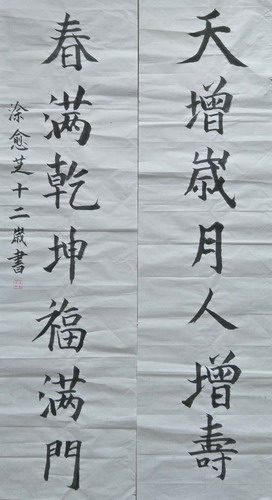 天增歲月人增壽
春滿乾坤福滿門
涂愈芝十二歲書